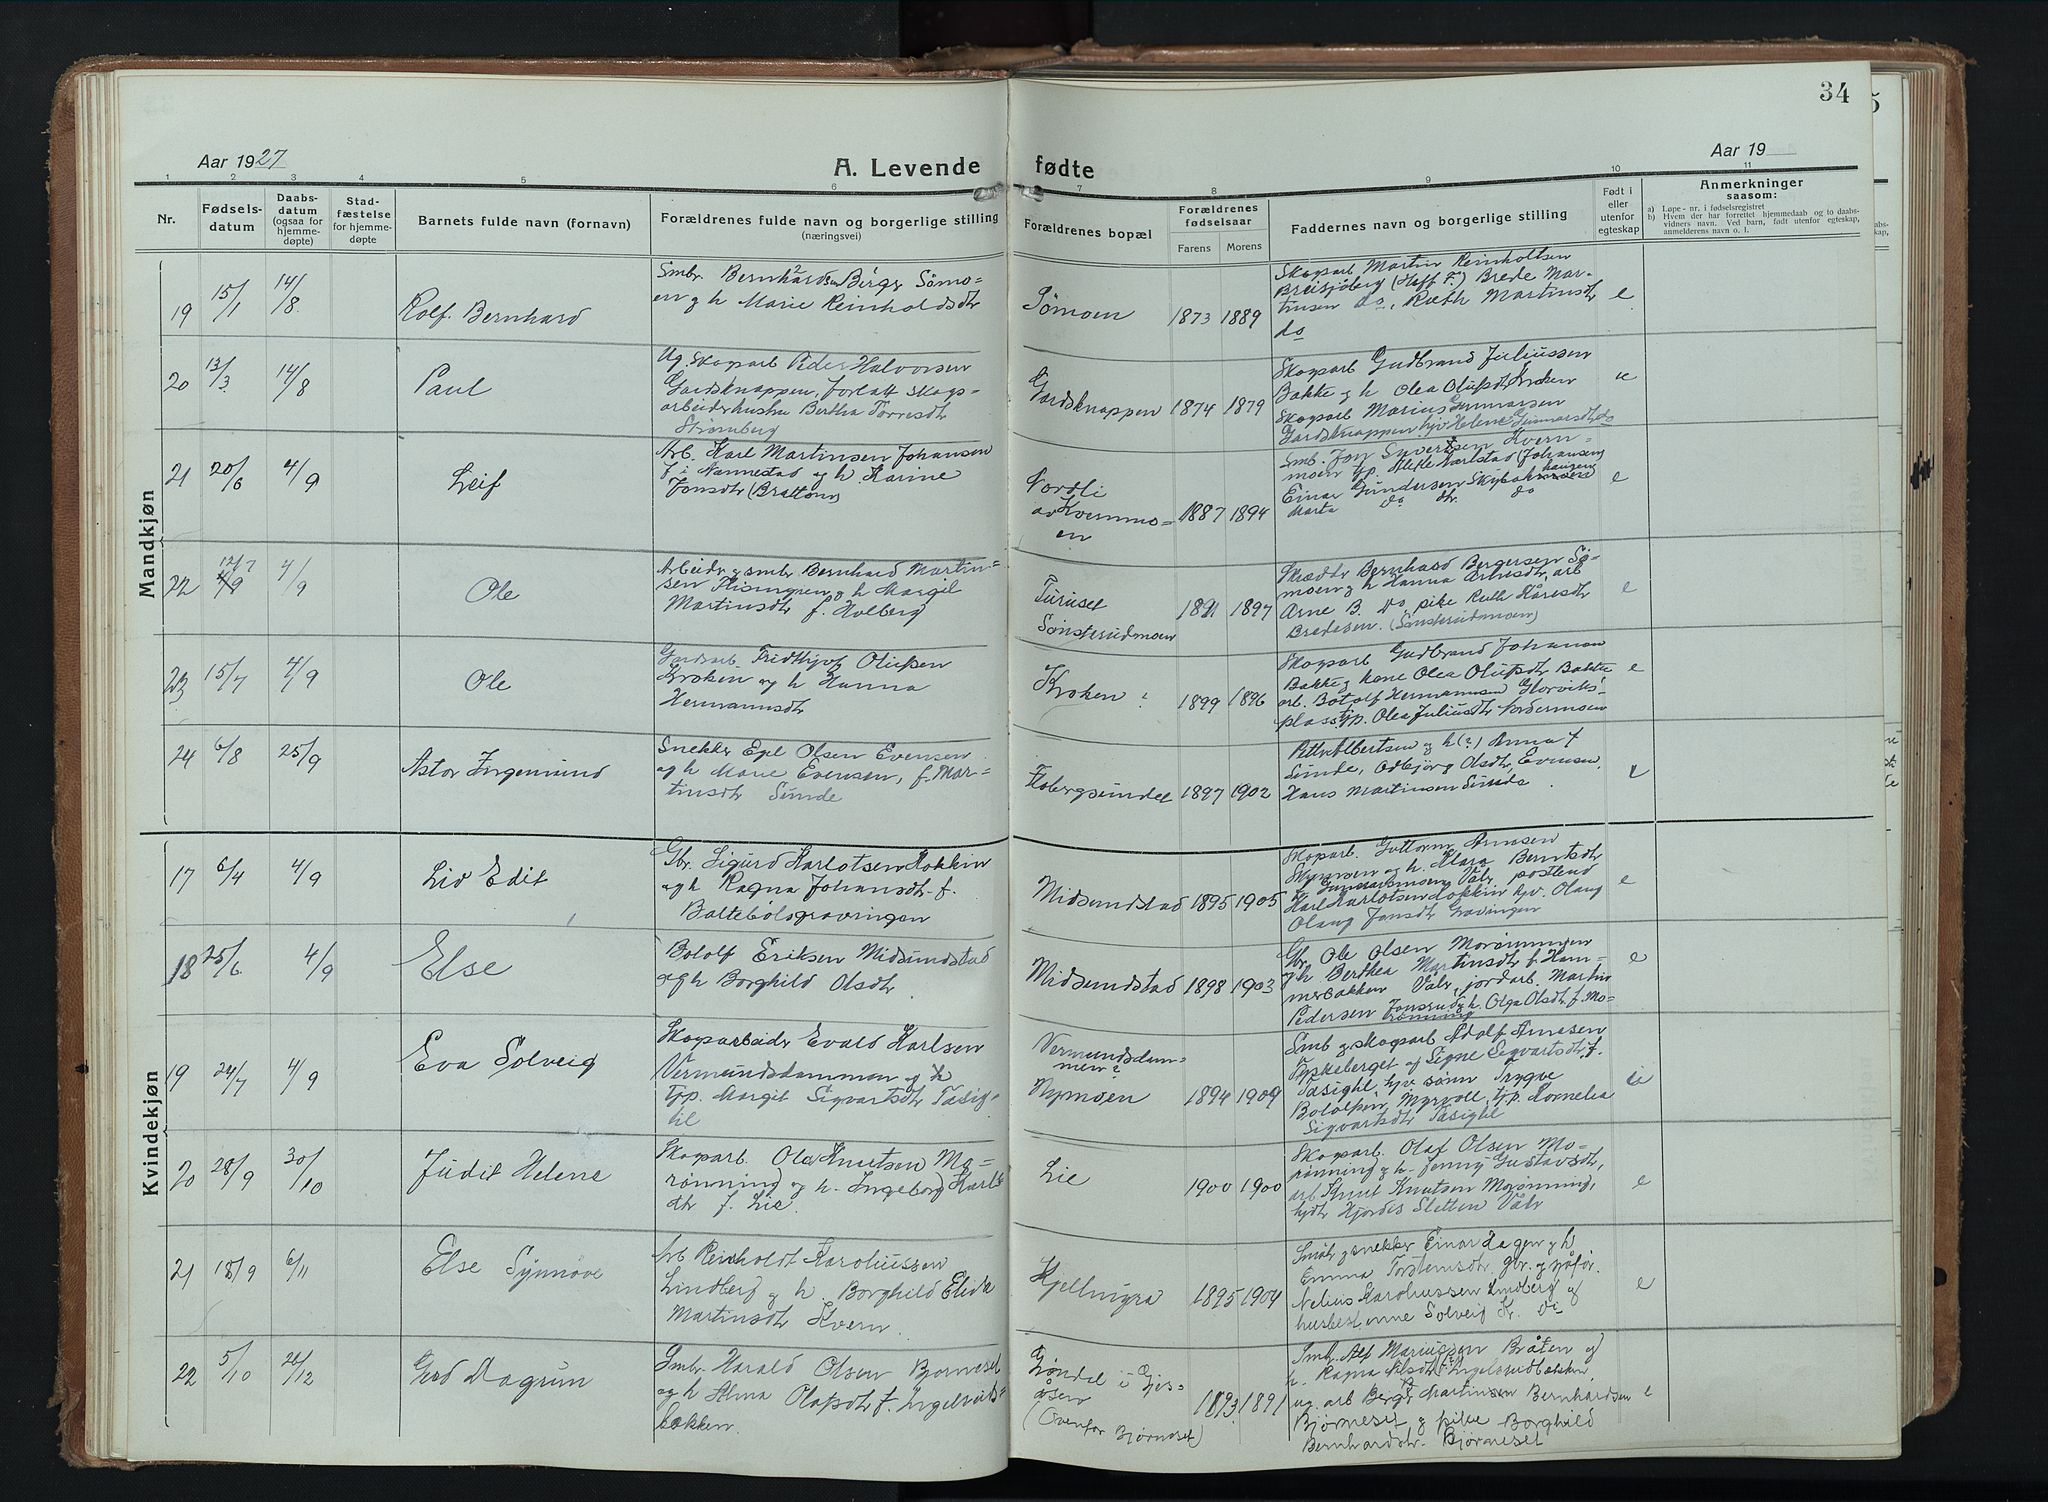 34
Aar 1927
A. Levende
fødte
Aar 19
1 2 3 4 5 6 7 8 9 10 11
Nr.
Fødsels-
datum
Daabs-
datum
(ogsaa for
hjemme-
døpte)
Stad-
fæstelse
for hjemme-
døpte
Barnets fulde navn (fornavn)
Forældrenes fulde navn og borgerlige stilling
(næringsvei)
Forældrenes bopæl
Forældrenes
fødselsaar
Farens
Morens
Faddernes navn og borgerlige stilling
Født i
eller
utenfor
egteskap
Anmerkninger
saasom:
a) Løpe-nr. i fødselsregistret
b) Hvem der har forrettet hjemmedaab og to daabs-
vidners navn. Ved barn, født utenfor egteskap,
anmelderens navn o. l.
Mandkjøn
19 15/1 14/8
Rolf Bernhard
Smbr. Bernhardsen Berger Sømo-
en g h Marie Reinholdsdtr
Sømoen
1873 1889
Skogsarb Martin Reinholtsen
Breisjøberg (Hoff F.) Brede Mar-
tinsen do, Ruth Martinsdtr
do
e
20 13/3 14/8
Paul
Ug. skogsarb Peder Halvorsen
Gardsknappen, Forlatt skogs-
arbeiderhustru Bertha Torresdtr
Strømberg
Gardsknappen
1874 1879
Skogsarb Gudbrand Juliussen
Bakke g h Olea Olufsdtr Kroken
Skogsarb Marius Gunnarsen
Gardsknappen hjv Helene Gunnarsdtr do
u
21 20/6 4/9
Leif
Arb. Karl Martinsen Johansen
f i Nannestad og h. Karine
Jonsdtr (Bråtom)
Nordli
av Kvernmo-
en
1887 1894
Smb. Jon Syvertsen Kvern-
moen tjp. Karlstad (Johansen)
Einar Gundersen Skybak
Marta do dtr do
e
22 12/7 4/9
Ole
Arbeider g smbr Bernhard Martin-
sen Flisingren g h Margit
Martinsdtr f. Holberg
Furuset
Sønsterudmoen
1891 1897
Skrædder Bernhard Bergersen Sø-
moen g h Hanna Arnesdtr, arb
Arne B. do, pike Ruth Kåresdtr
Bredesen. (Sønsterudmoen)
e
23 15/7 4/9
Ole
Gardsarb. Fridthjof Olufsen
Kroken og h Hanna
Hermannsdtr
Kroken ?
1899 1896
Skogsarb Gudbrand Johansen
Bakke g kone Olea Olufsdtr Bakke
arb. Botolf Hermansen Glorviks-
plass tjp. Olea Juliusdtr Nordermoen
e
24 6/8 25/9
Astor Ingemund
Snekker Egil Olsen Evensen
og h Marie Evensen, f. Mar-
tinsdtr Sunde
Flobergsundet
1897 1902
Petter Albertsen g h (?) Anna f
Sunde, Odbjørg Olsdtr, Evensen,
Hans Martinsen Sunde
e
Kvindekjøn
17 6/4 4/9
Liv Edit
Gbr. Sigurd Karlotsen Lokkin
og h Ragna Johansdtr. f.
Baltebølsgravingen
Midsundstad
1895 1905
Skogsarb. Guttorm Arnesen
Skymoen og h. Klara Berntsdtr
f. Gunnarsmoen Våler postbud
Karl Karlotsen Lokkin hjv. Olaug
Olaug Jonsdtr Gravingen
e
18 25/6 4/9
Else
Botolf Eriksen Midsundstad
og h Borghild Olsdtr
Midsundstad
1898 1903
Gbr. Ole Olsen Morønningen
g h Berthea Martinsdtr f. Ham-
merbakken Våler, jordarb. Martin
Pedersen Jonsrud g h. Olga Olsdtr f. Mo-
rønning
e
19 24/7 4/9
Eva Solveig
Skogsarbeider Evald Karlsen
Vermundsdammen og h
tjp. Margit Sigvartsdtr Tasig-
til
Vermundsdam-
men?
Nymoen
1894 1909
Smb g skogsarb Adolf Arnesen
Tyskeberget og Signe Sigvartsdtr, f.
Tasigtil, hjv sønn Trygve
Botolfsen, Myrvoll, tjp. Kornelia
Sigvartsdtr Tasigtil
u
20 28/9 30/10
Judit Helene
Skogsarb. Ola Knutsen Mo-
rønning og h. Ingeborg Karls-
dtr f. Lie.
Lie
1900 1900
Skogsarb. Olaf Olsen Mo-
rønning g h. Jenny Gustavsdtr,
arb Knut Knutsen Morønning,
hjdtr Hjørdis Sletten Våler
e
21 18/9 6/11
Else Synnøve
Arb Reinholdt Karoliussen
Lindberg g h. Borghild Elida
Martinsdtr Kvern.
Kjellmyra
1895 1904
Småbr g snekker Einar Hagen g h
Emma Torstensdtr. Gbr. og sjåfør.
Nelius Karoliussen Lindberg og
husbestyrerinne Solveig K. do
e
22 5/10 26/12
Gerd Dagrun
Smbr. Harald Olsen Bjørneset
og h Alma Olafsdtr f. Ingelsruds-
bakken.
Grøndal i Gjes-
åsen
(Ovenfor Bjørneset)
1893 1891
Smbr. Alf Mariussen Bråten og
h. Ragna Olsdtr f. Ingelsrudbakken,
ug. arb Berger Martinsen Bernhardsen
Bjørneset g pike Borghild
Bernhardsdtr. Bjørneset
e